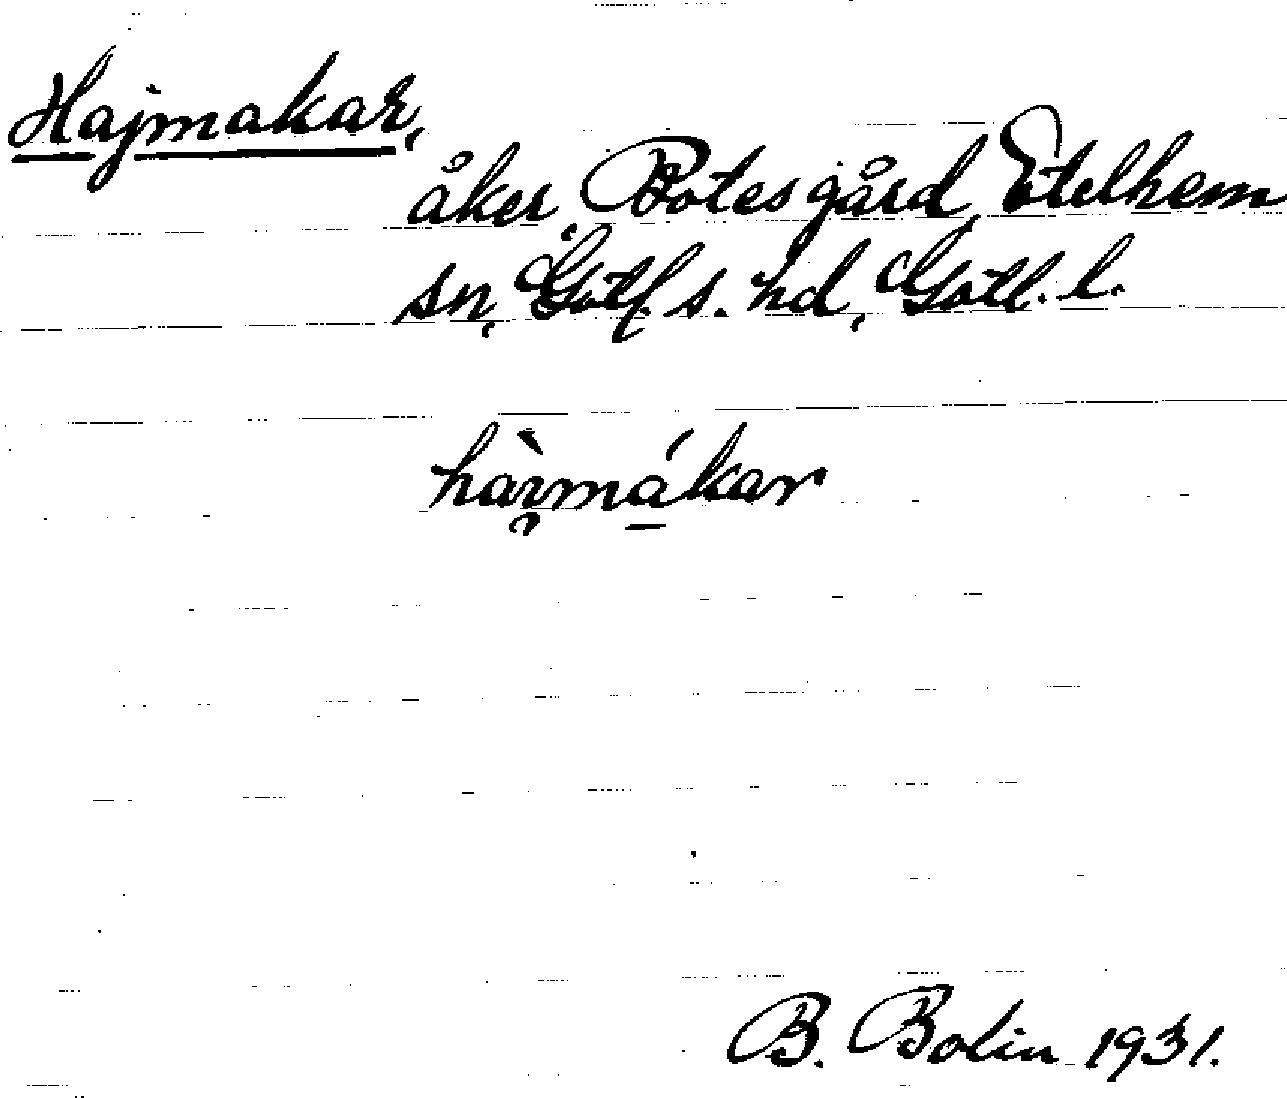 Hajmakar,
åker, Botes gård, Etelhem
sn, Gotl. s. hd, Gotl. l.
hài̯má̱kar
B. Bolin 1931.